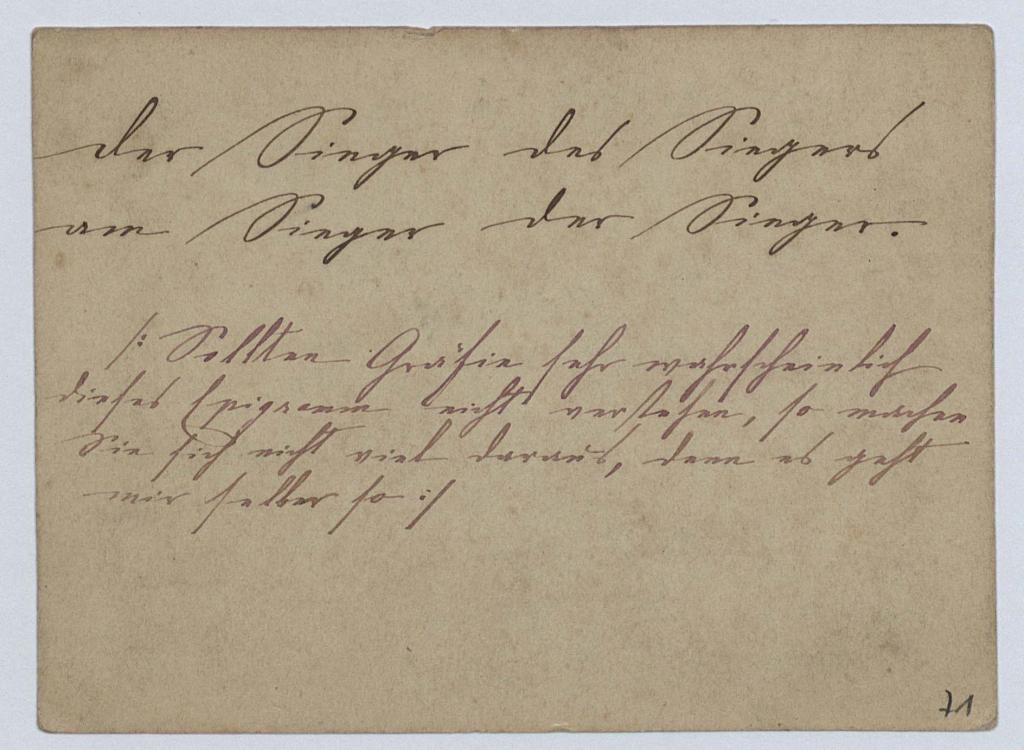 der Sieger des Siegers
am Sieger der Sieger.
/: Sollten Gräfin sehr wahrscheinlich
dieses Epigramm nicht verstehen, so machen
Sie sich nicht viel daraus, denn es geht
mir selber so :/
71